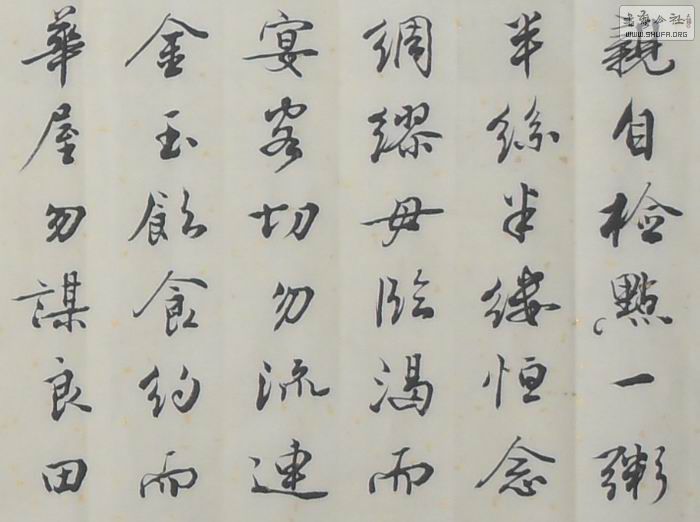 親自檢點一粥
半絲半縷恒念
綢繆毋臨渴而
宴客切勿流連
金玉飲食約而
華屋勿謀良田
WWW.SHUFA.ORG